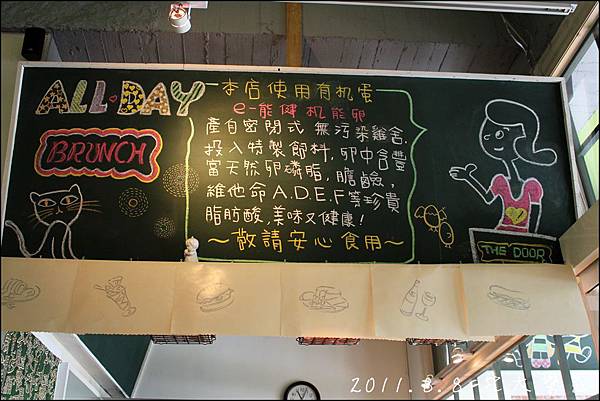 ALL DAY
BRUNCH
本店使用有机蛋
e-能健机能卵
產自密閉式 無污染雞舍.
投入特製飼料, 卵中含豐
富天然卵磷脂, 膽鹼,
維他命 A.D.E.F 等珍貴
脂肪酸, 美味又健康!
~敬請安心食用~
THE DOOR
2011.8.8